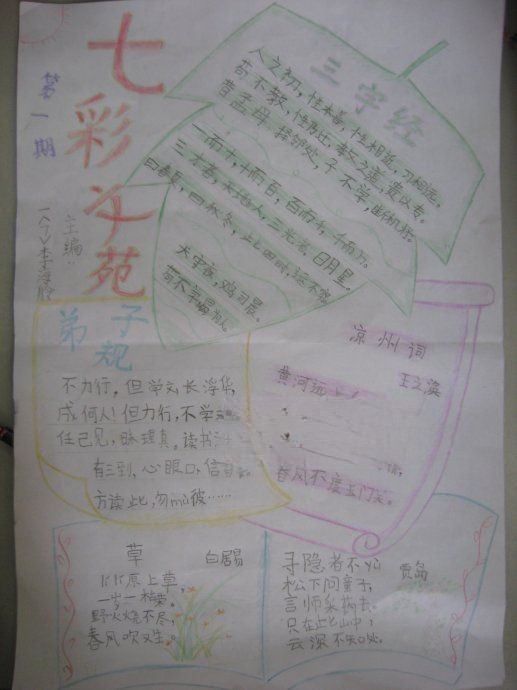 七彩文苑
第一期
主编:
三字经
人之初,性本善,性相近,习相远。
苟不教,性乃迁,教之道,贵以专。
昔孟母,择邻处,子不学,断机杼。
一而十,十而百,百而千,千而万。
三才者,天地人,三光者,日月星。
曰春夏,曰秋冬,此四时,运不穷
犬守夜,鸡司晨。
苟不学,曷为人。
弟子规
不力行,但学文,长浮华,
成何人!但力行,不学
任己见,昧理真。读书
有三到,心眼口,信
方读此,勿mù彼……
凉州词
王之涣
黄河远上
春风不度玉门关。
草
白居易
原上草,
一岁一枯荣。
野火烧不尽,
春风吹又生。
寻隐者不
贾岛
松下问童子,
言师采药去。
只在此山中,
云深不知处。